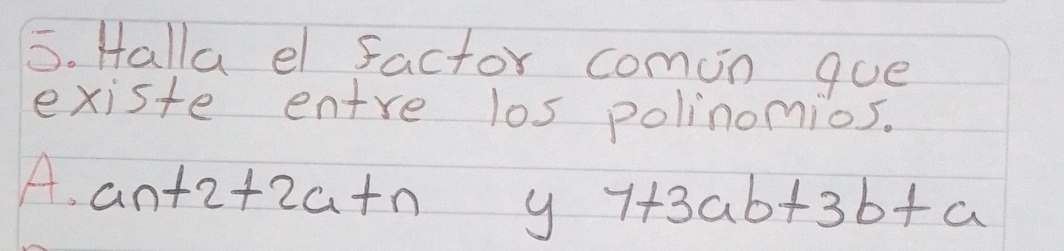 5. Halla el factor común que
existe entre los polinomios.
A. an+2+2a+n y 7+3ab+3b+a